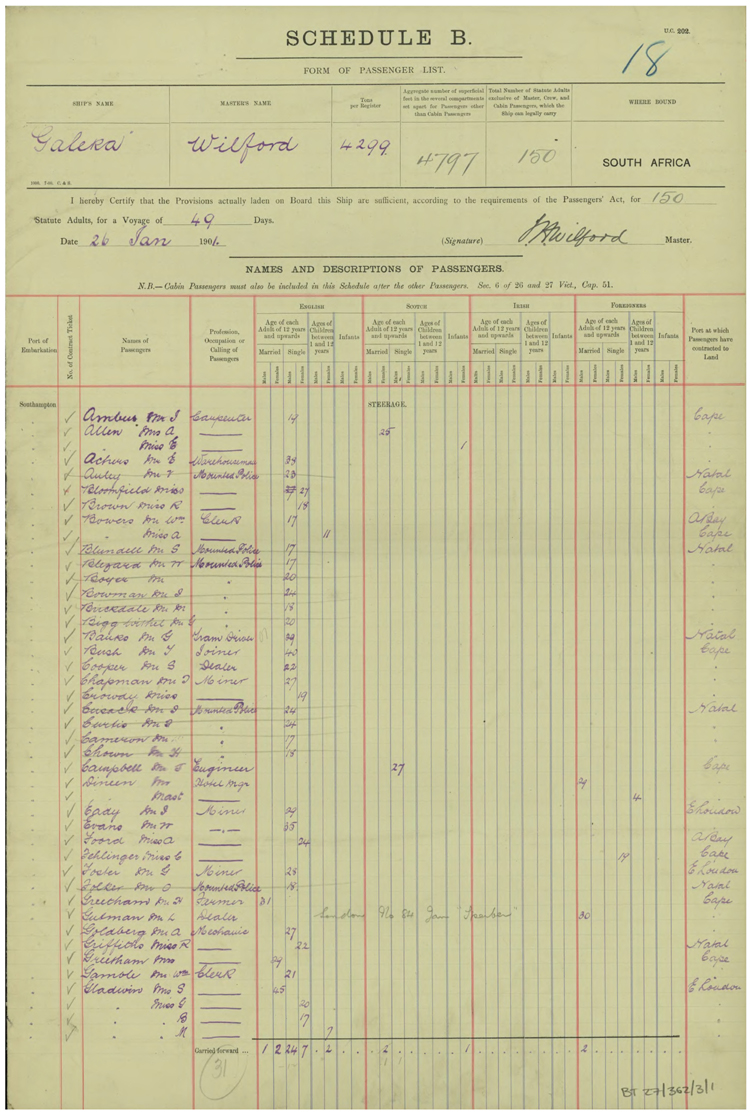 SCHEDULE B.
U.C. 202.
18
FORM OF PASSENGER LIST.
SHIP'S NAME MASTER'S NAME Tons per Register Aggregate number of superficial feet in the several compartments set apart for Passengers other than Cabin Passengers Total Number of Statute Adults exclusive of Master, Crew, and Cabin Passengers, which the Ship can legally carry WHERE BOUND
Galeka Wilford 4299 4797 150 SOUTH AFRICA
I hereby Certify that the Provisions actually laden on Board this Ship are sufficient, according to the requirements of the Passengers' Act, for 150
Statute Adults, for a Voyage of 49 Days.
Date 26 Jan 1901. (Signature) Wilford Master.
NAMES AND DESCRIPTIONS OF PASSENGERS.
N.B.—Cabin Passengers must also be included in this Schedule after the other Passengers. Sec. 6 of 26 and 27 Vict., Cap. 51.
ENGLISH SCOTCH IRISH FOREIGNERS
Port of Embarkation No. of Contract Ticket Names of Passengers Profession, Occupation or Calling of Passengers Port at which Passengers have contracted to Land
Age of each Adult of 12 years and upwards Ages of Children between 1 and 12 years Infants
Married Single
Males Females
Southampton STEERAGE.
Mr J Carpenter 14 Cape
Allen Mrs A 25
" Miss E 1
Mr E Warehouseman
Mr Mounted Police 23 Natal
Bloomfield Miss 27 Cape
Brown Miss R 18
Bowers Mr Wm Clerk 17 A Bay
" Miss A 11 Cape
Blundell Mr S Mounted Police 17 Natal
Blezard Mr W Mounted Police 17
Boyer Mr " 20
Bowman Mr J " 24
Birckdale Mr " 18
Bigg Mr G 20
Banks Mr G Tram Driver 39 Natal
Bush Mr T Joiner 40 Cape
Cooper Mr S Dealer 22
Chapman Mr J Miner 27
Crowdy Miss 19
Cusack Mr Mounted Police 24 Natal
Curtis Mr " 24
Cameron Mr " 17
Chown Mr H " 18
Campbell Mr J Engineer 27 Cape
Dineen Mr Hotel Mgr
" Mast 4
Eady Mr J Miner 29 E London
Evans Mr W 35
Foord Miss A 24 A Bay
Fehlinger Miss C 19 Cape
Foster Mr G Miner 28 E London
Folker Mr O Mounted Police 18 Natal
Greetham Mr H Farmer 31 Cape
Gutman Mr L Dealer 30
Goldberg Mr A Mechanic 27
Griffiths Miss R 22 Natal
Greetham Mrs 29 Cape
Gamble Mr Wm Clerk 21
Gladwin Mrs S 45 E London
" Miss G 20
" " B 17
" " M 7
Carried forward ... 1 2 24 7 . 2 . . . 2 . . . 1 . . . 2 . . .
31
BT 27/362/3/1